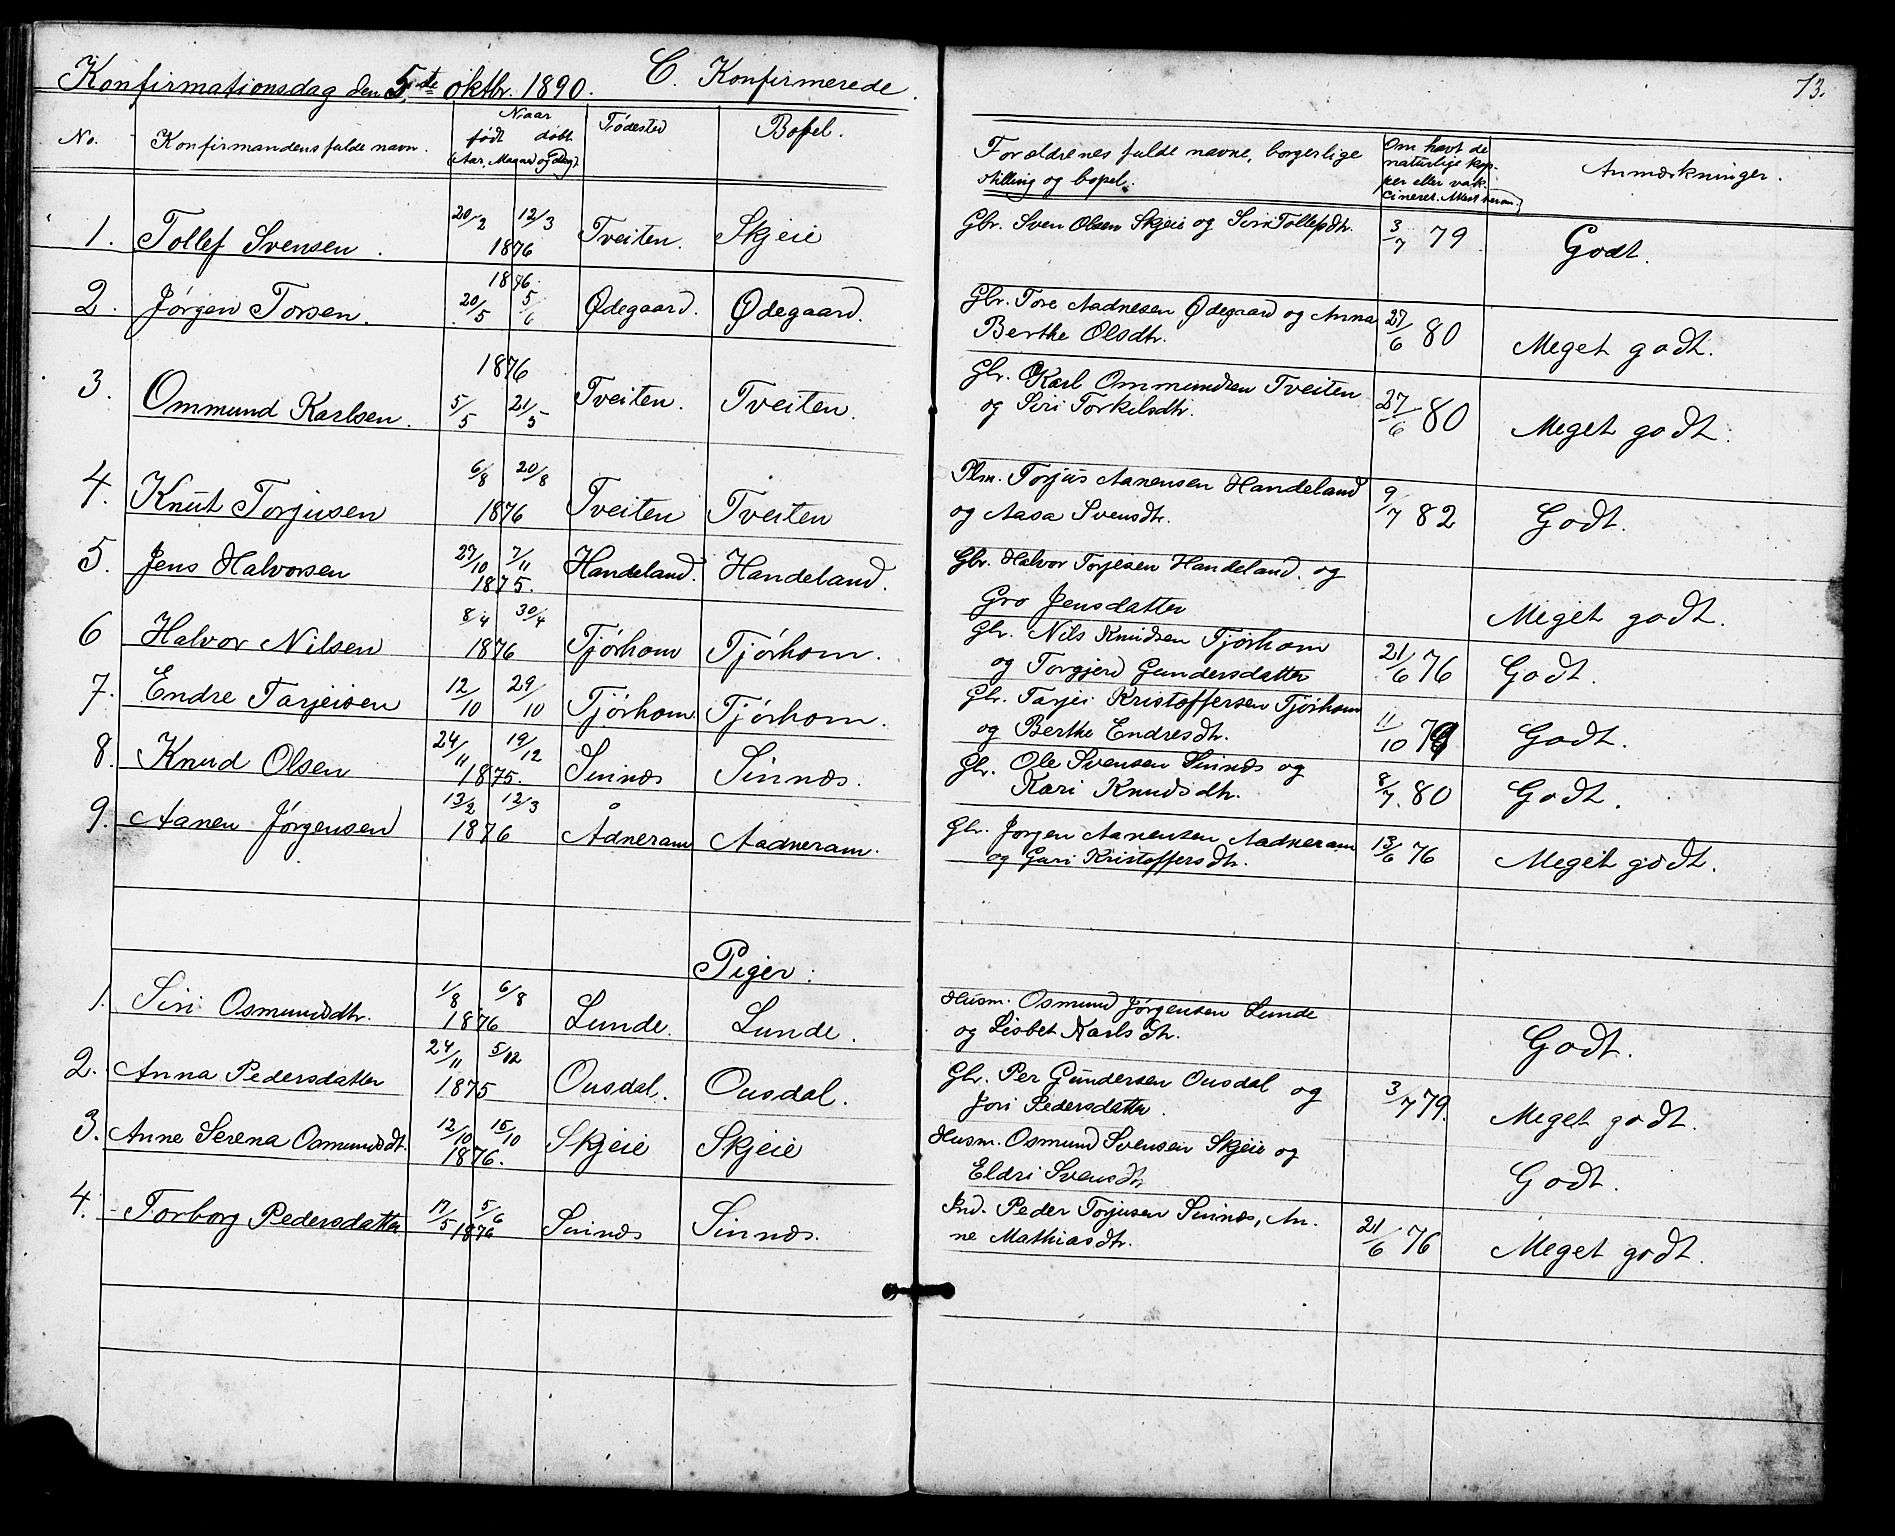 Konfirmationsdag den 5.te oktbr. 1890. C. Konfirmerede.
73.
No. Konfirmandens fulde navn. Naar født døbt (Aar, Maaned og Dag). Fødested Bopel. Forældrenes fulde navne, borgerlige stilling og bopel. Om havt de naturlige kopper eller vakcineret. Attest herom. Anmærkninger.
1. Tollef Svensen. 20/2 12/3 1876 Tveiten. Skjeie Gbr. Sven Olsen Skjeie og Siri Tollefsdtr. 3/7 79 Godt.
2. Jørgen Torsen. 1876 20/5 5/6 Ødegaard. Ødegaard. Gbr. Tore Aadnesen Ødegaard og Anna
Berthe Olsdtr. 27/6 80 Meget godt.
3. Ommund Karlsen. 1876 5/5 21/5 Tveiten. Tveiten. Gbr. Karl Ommundsen Tveiten
og Siri Torkilsdtr. 27/6 80 Meget godt.
4. Knut Torjusen 6/8 20/8 1876 Tveiten Tveiten Plm. Torjus Aanensen Handeland
og Aasa Svensdtr. 9/7 82 Godt.
5. Jens Halvorsen 27/10 7/11 1875. Handeland. Handeland. Gbr. Halvor Torjesen Handeland. og
Gro Jensdatter Meget godt.
6 Halvor Nilsen 8/4 30/4 1876 Tjørhom Tjørhom. Gbr. Nils Knudsen Tjørhom
og Torgjerd Gundersdatter 21/6 76 Godt.
7. Endre Tarjeisen 12/10 29/10 Tjørhom Tjørhom. Gbr. Tarjei Kristoffersen Tjørhom
og Berthe Endresdtr. 11/10 79 Godt.
8. Knud Olsen 24/11 19/12 1875. Sinnes Sinnes. Gbr. Ole Svensen Sinnes og
Kari Knudsdtr. 8/7. 80 Godt.
9. Aanen Jørgensen 13/2 12/3 1876 Ådneram Aadneram. Gbr. Jørgen Aanensen Aadneram
og Guri Kristoffersdtr. 13/6 76 Meget godt.
Piger:
1. Siri Osmundsdtr. 1/8 6/8 1876 Lunde. Lunde. Husm. Osmund Jørgensen Lunde
og Lisbet Karlsdtr. Godt.
2. Anna Pedersdatter 24/11 5/12 1875 Ousdal. Ousdal. Gbr. Per Gundersen Ousdal og
Jori Pedersdatter. 3/7 79. Meget godt.
3. Anne Serena Osmundsdt. 12/10 15/10 1876. Skjeie Skjeie Husm. Osmund Svensen Skjeie og
Eldri Svensdtr Godt.
4. Torborg Pedersdatter 17/5 5/6 1876 Sinnes Sinnes. Ind. Peder Torjusen Sinnes, An-
ne Mathiasdtr. 21/6 76 Meget godt.